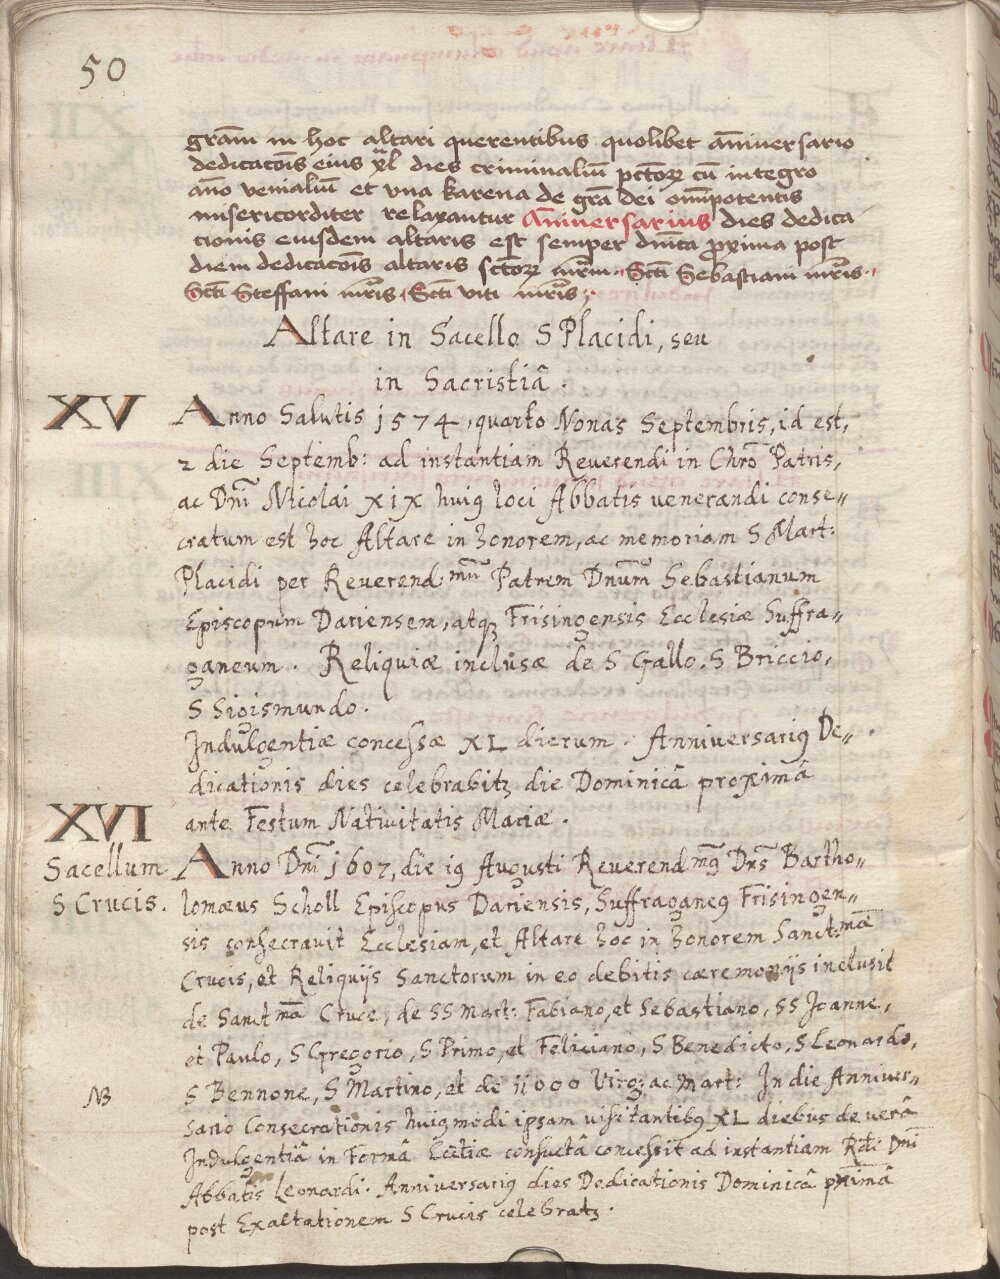 50
gr̄am in hoc altari querentibus quolibet an̄iversario
dedicac̄ois eius xl dies criminaliū pctoꝝ cū integro
an̄o venialiū et vna karena de gr̄a dei om̄ipotentis
misericorditer relaxantur An̄iversarius dies dedica
tionis eiusdem altaris est semper dn̄ica proxima post
diem dedicac̄ois altaris sctoꝝ mrm. Scti Sebastiani mr̄is.
Scti Steffani mr̄is, Scti viti mr̄is,
Altare in Sacello S Placidi, seu
in Sacristiâ.
XV Anno Salutis 1574, quarto Nonas Septembris, id est,
2 die Septemb: ad instantiam Reverendi in Chr̄o Patris,
ac Dn̄i Nicolai XIX huiꝰ loci Abbatis venerandi conse„
cratum est hoc Altare in honorem, ac memoriam S Mart:
Placidi per Reverend.mū Patrem Dnūm Sebastianum
Episcopum Dariensem, atqꝫ Frisingensis Ecclesiæ Suffra„
ganeum. Reliquiæ inclusæ de S Gallo, S Briccio,
S Sigismundo.
Indulgentiæ concessæ XL dierum. Anniversariꝰ De„
dicationis dies celebrabitꝫ die Dominicâ proximâ
ante Festum Nativitatis Mariæ.
XVI
Sacellum
S Crucis.
Anno Dn̄i 1607, die 19 Augusti Reverendmꝰ Dn̄s Bartho„
lomæus Scholl Episcopus Dariensis, Suffraganeꝰ Frisingen„
sis consecravit Ecclesiam, et Altare hoc in honorem Sanct:mæ
Crucis, et Reliquijs Sanctorum in eo debitis cæremonijs inclusit
de Sanctmâ Cruce, de SS Mart: Fabiano, et Sebastiano, SS Joanne,
et Paulo, S Gregorio, S Primo, et Feliciano, S Benedicto, S Leonardo,
NB S Bennone, S Martino, et de 11000 Virg: ac Mart: In die Anniver„
sario Consecrationis huiꝰmodi ipsam visitantibꝰ XL diebus de verâ
Indulgentiâ in Formâ Ecclīæ consuetâ concessit ad instantiam Rdi: Dn̄i
Abbatis Leonardi. Anniversariꝰ dies Dedicationis Dominicâ p̄ximâ
post Exaltationem S Crucis celebratꝫ.